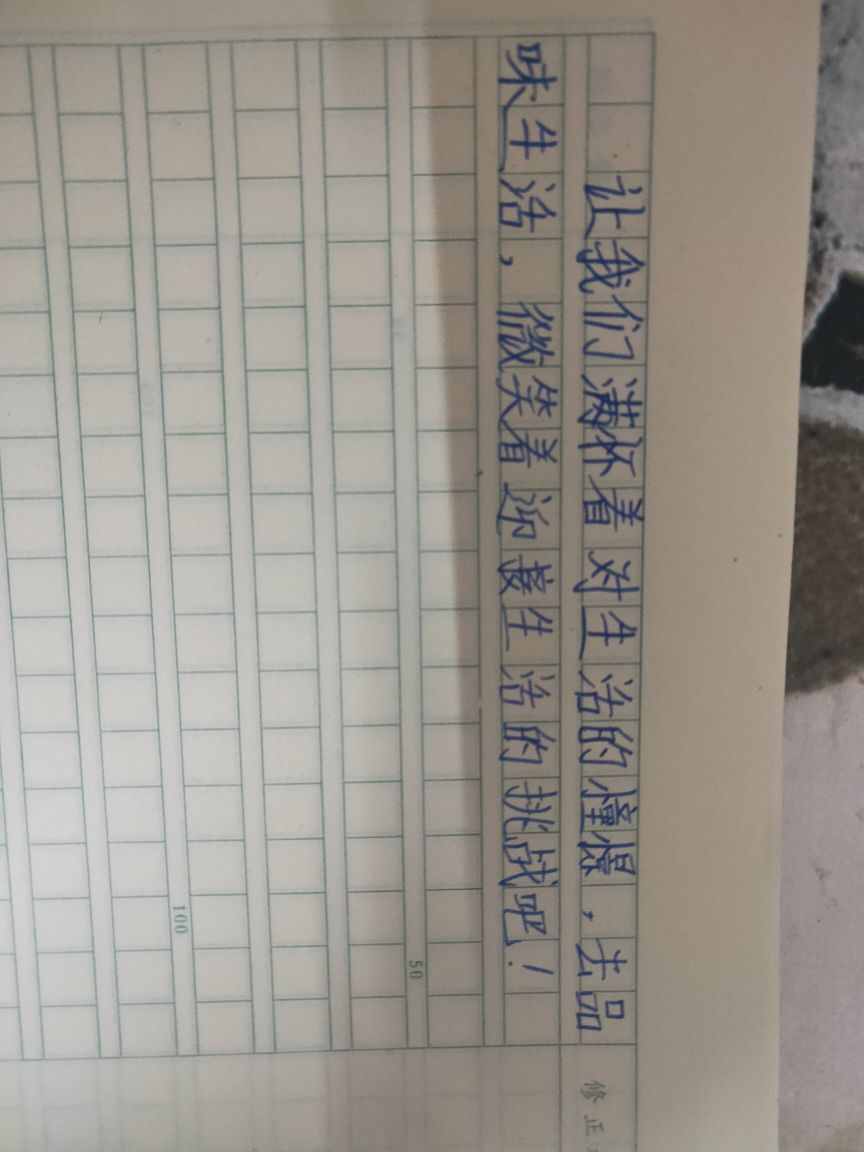 让我们满怀着对生活的憧憬，去品
味生活，微笑着迎接生活的挑战吧！
50
100
修正